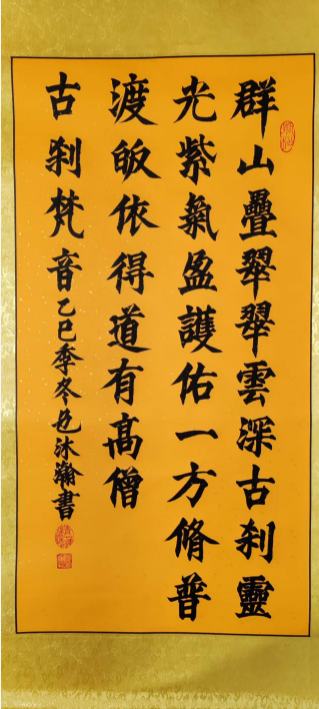 群山疊翠翠雲深古刹靈
光紫氣盈護佑一方脩普
渡皈依得道有髙僧
古刹梵音乙巳季冬沐瀚書